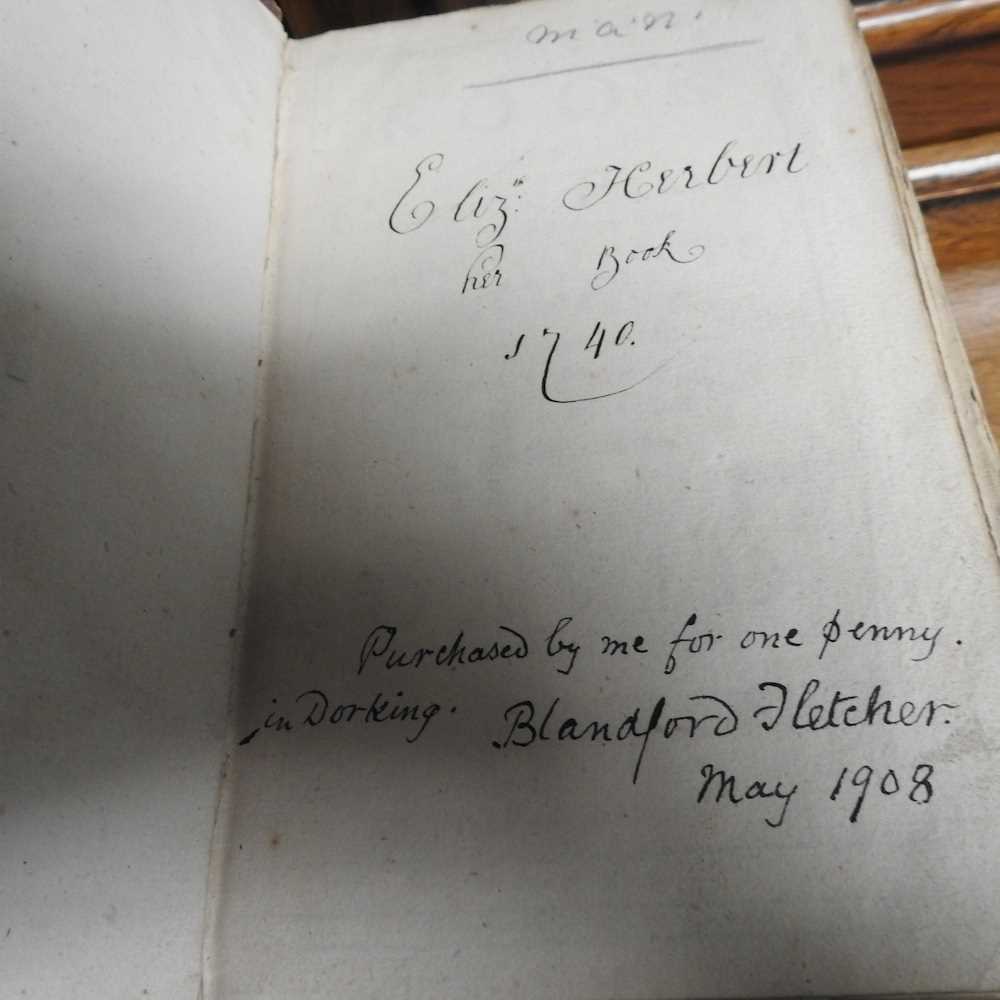 m a n.
Eliz:th Herbert
her Book
1740.
Purchased by me for one penny.
in Dorking. Blandford Fletcher.
May 1908